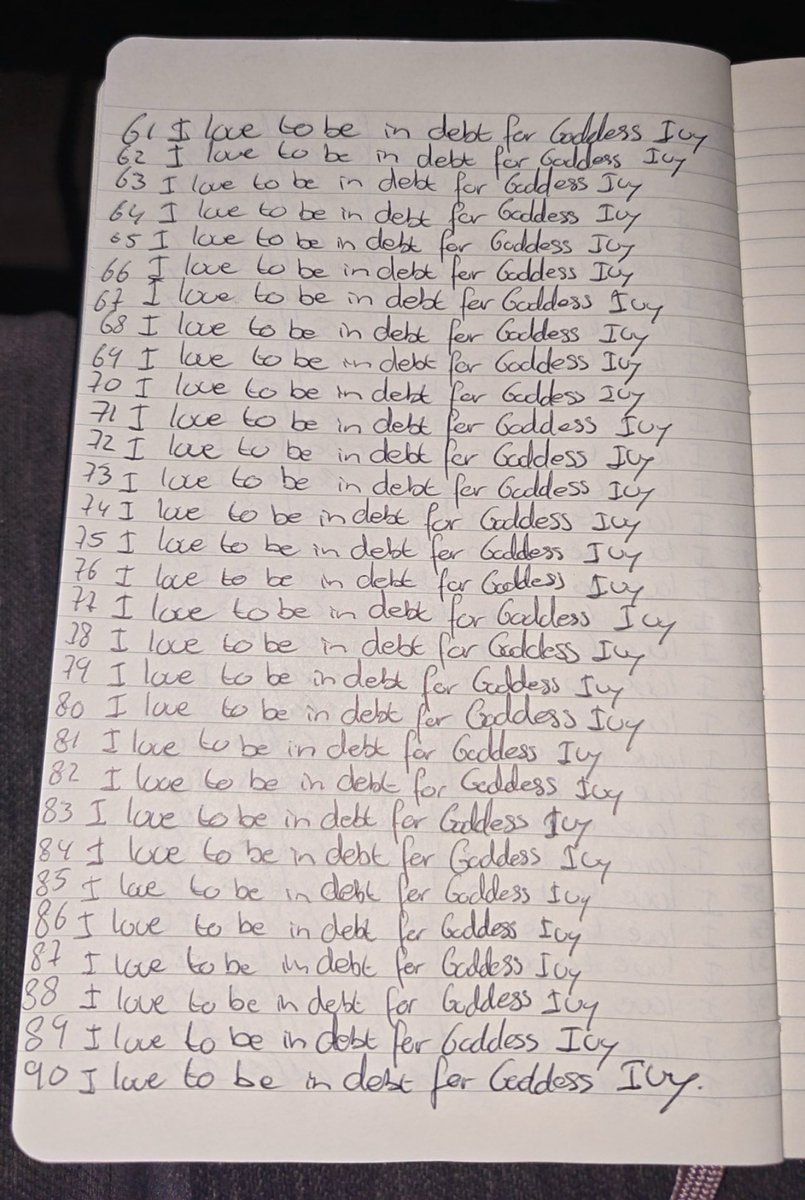 61 I love to be in debt for Goddess Ivy
62 I love to be in debt for Goddess Ivy
63 I love to be in debt for Goddess Ivy
64 I love to be in debt for Goddess Ivy
65 I love to be in debt for Goddess Ivy
66 I love to be in debt for Goddess Ivy
67 I love to be in debt for Goddess Ivy
68 I love to be in debt for Goddess Ivy
69 I love to be in debt for Goddess Ivy
70 I love to be in debt for Goddess Ivy
71 I love to be in debt for Goddess Ivy
72 I love to be in debt for Goddess Ivy
73 I love to be in debt for Goddess Ivy
74 I love to be in debt for Goddess Ivy
75 I love to be in debt for Goddess Ivy
76 I love to be in debt for Goddess Ivy
77 I love to be in debt for Goddess Ivy
78 I love to be in debt for Goddess Ivy
79 I love to be in debt for Goddess Ivy
80 I love to be in debt for Goddess Ivy
81 I love to be in debt for Goddess Ivy
82 I love to be in debt for Goddess Ivy
83 I love to be in debt for Goddess Ivy
84 I love to be in debt for Goddess Ivy
85 I love to be in debt for Goddess Ivy
86 I love to be in debt for Goddess Ivy
87 I love to be in debt for Goddess Ivy
88 I love to be in debt for Goddess Ivy
89 I love to be in debt for Goddess Ivy
90 I love to be in debt for Goddess Ivy.